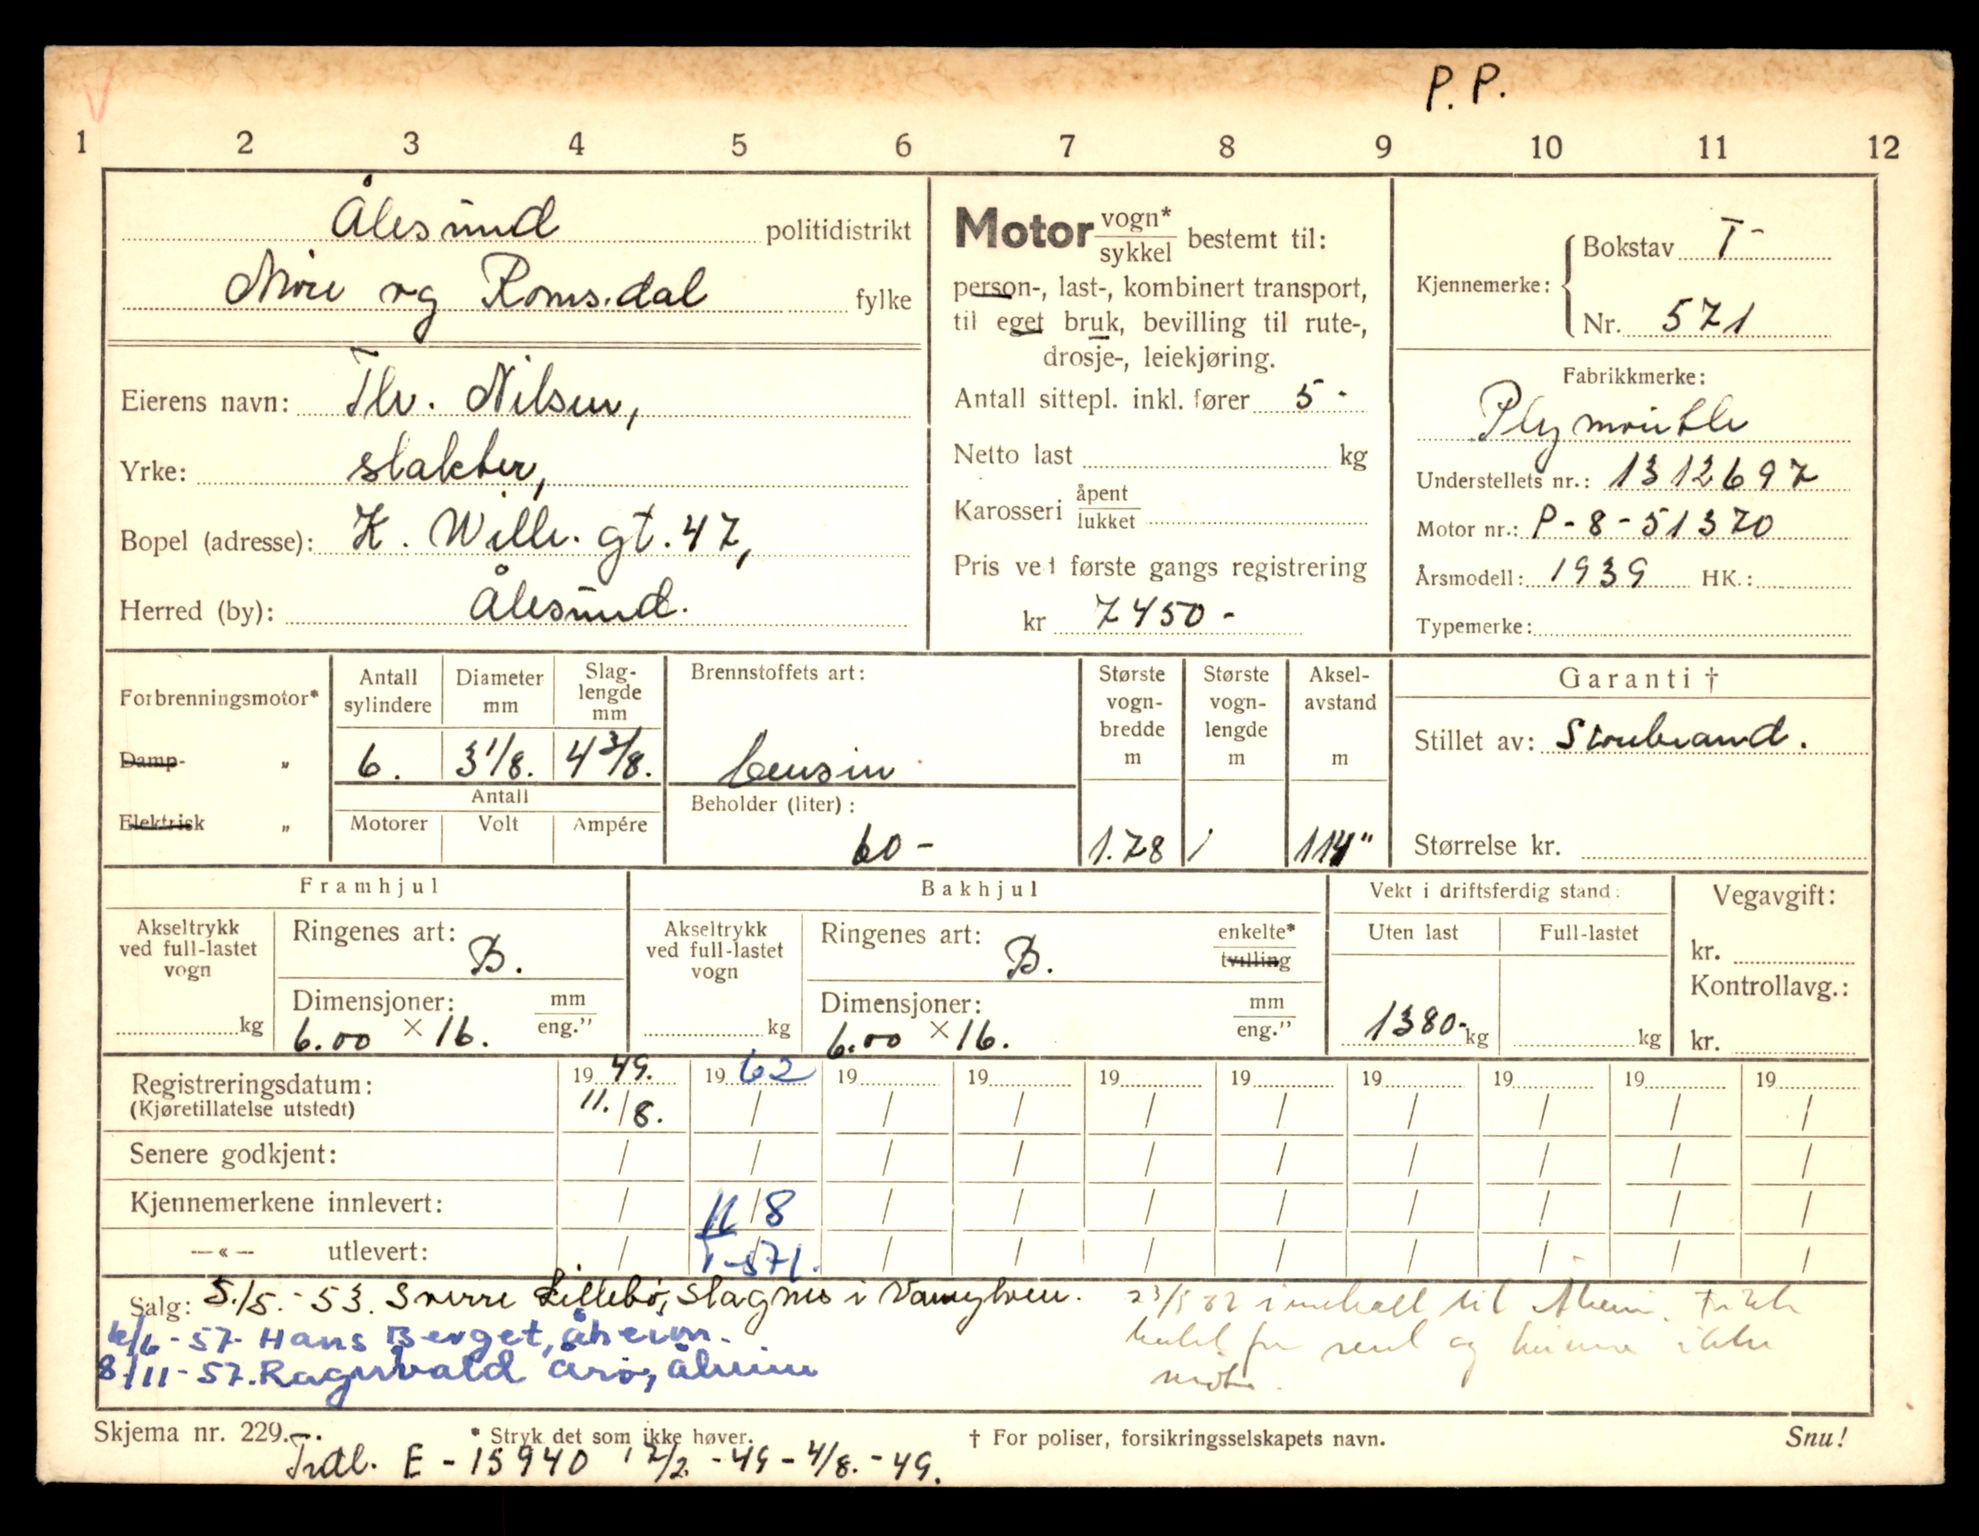 P. P.
1 2 3 4 5 6 7 8 9 10 11 12
Ålesund politidistrikt
Møre og Romsdal fylke
Eierens navn: Thv. Nilsen,
Yrke: slakter,
Bopel (adresse): K. Wille. gt. 47,
Herred (by): Ålesund.
Motor vogn* / sykkel bestemt til:
person-, last-, kombinert transport,
til eget bruk, bevilling til rute-,
drosje-, leiekjøring.
Antall sittepl. inkl. fører 5 -
Netto last kg
Karosseri åpent / lukket
Pris ved første gangs registrering
kr 7450 -
Kjennemerke: Bokstav T-
Nr. 571
Fabrikkmerke:
Plymouth
Understellets nr.: 1312697
Motor nr.: P-8-51370
Årsmodell: 1939 HK.:
Typemerke:
Forbrenningsmotor*
Damp- „
Elektrisk „
Antall sylindere
6.
Diameter mm
3 1/8.
Slaglengde mm
4 3/8.
Antall
Motorer Volt Ampére
Brennstoffets art:
bensin
Beholder (liter):
60 -
Største vognbredde m
1.78
Største vognlengde m
Akselavstand m
114"
Garanti †
Stillet av: Storebrand.
Størrelse kr.
Framhjul
Akseltrykk ved full-lastet vogn
kg
Ringenes art: B.
Dimensjoner: mm / eng."
6.00 × 16.
Bakhjul
Akseltrykk ved full-lastet vogn
kg
Ringenes art: B. enkelte* / tvilling
Dimensjoner: mm / eng."
6.00 × 16.
Vekt i driftsferdig stand:
Uten last Full-lastet
1380- kg kg
Vegavgift:
kr.
Kontrollavg.:
kr.
Registreringsdatum: 19 49. 19 62 19 19 19 19 19 19 19 19
(Kjøretillatelse utstedt) 11./8. / / / / / / / / /
Senere godkjent: / / / / / / / / / /
Kjennemerkene innlevert: / 11/8 / / / / / / / /
—«— utlevert: / T-571. / / / / / / / /
Salg: 5./5.-53. Sverre Lillebø, Slagnes i Vanylven.
6/6-57 Hans Berget, Åheim.
8/11-57. Ragnvald Årø, Åheim
Skjema nr. 229. * Stryk det som ikke høver. † For poliser, forsikringsselskapets navn. Snu!
Tidl. E-15940 12/2-49-4/8.-49.